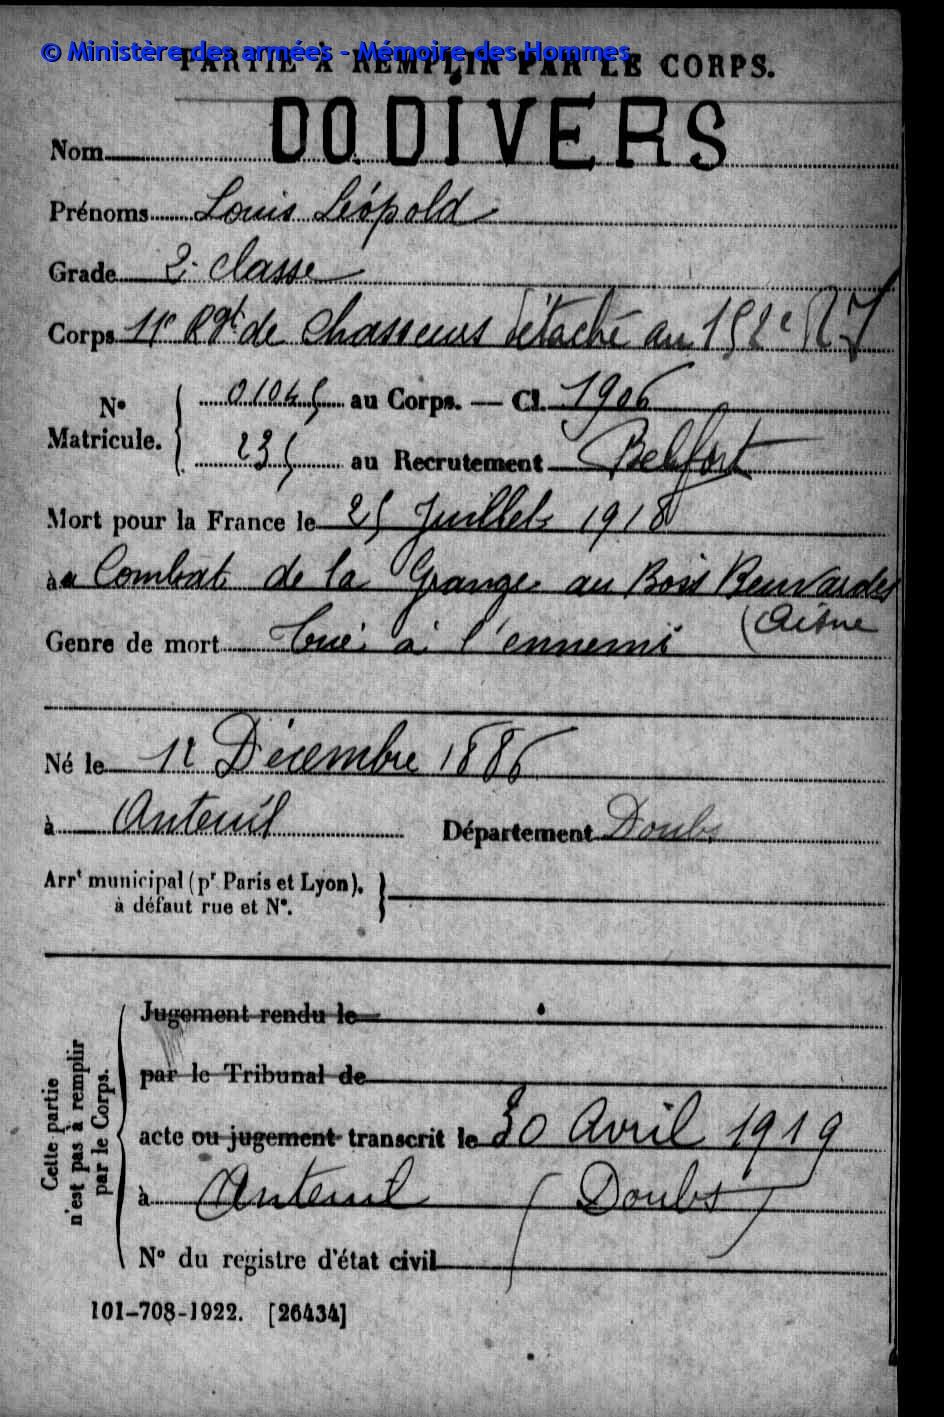 © Ministère des armées - Mémoire des Hommes
PARTIE À REMPLIR PAR LE CORPS.
Nom DODIVERS
Prénoms Louis Léopold
Grade 2e classe
Corps 11e Rgt de Chasseurs détaché au 152e RI
N° Matricule. { 01045 au Corps. — Cl. 1906
235 au Recrutement Belfort
Mort pour la France le 25 Juillet 1918
à Combat de la Grange au Bois Beuvardes
(Aisne
Genre de mort Tué à l'ennemi
Né le 12 Décembre 1886
à Anteuil Département Doubs
Arrt municipal (pr Paris et Lyon),
à défaut rue et N°. }
Cette partie n'est pas à remplir par le Corps.
Jugement rendu le
par le Tribunal de
acte ou jugement transcrit le 30 Avril 1919
à Anteuil (Doubs)
N° du registre d'état civil
101-708-1922. [26434]